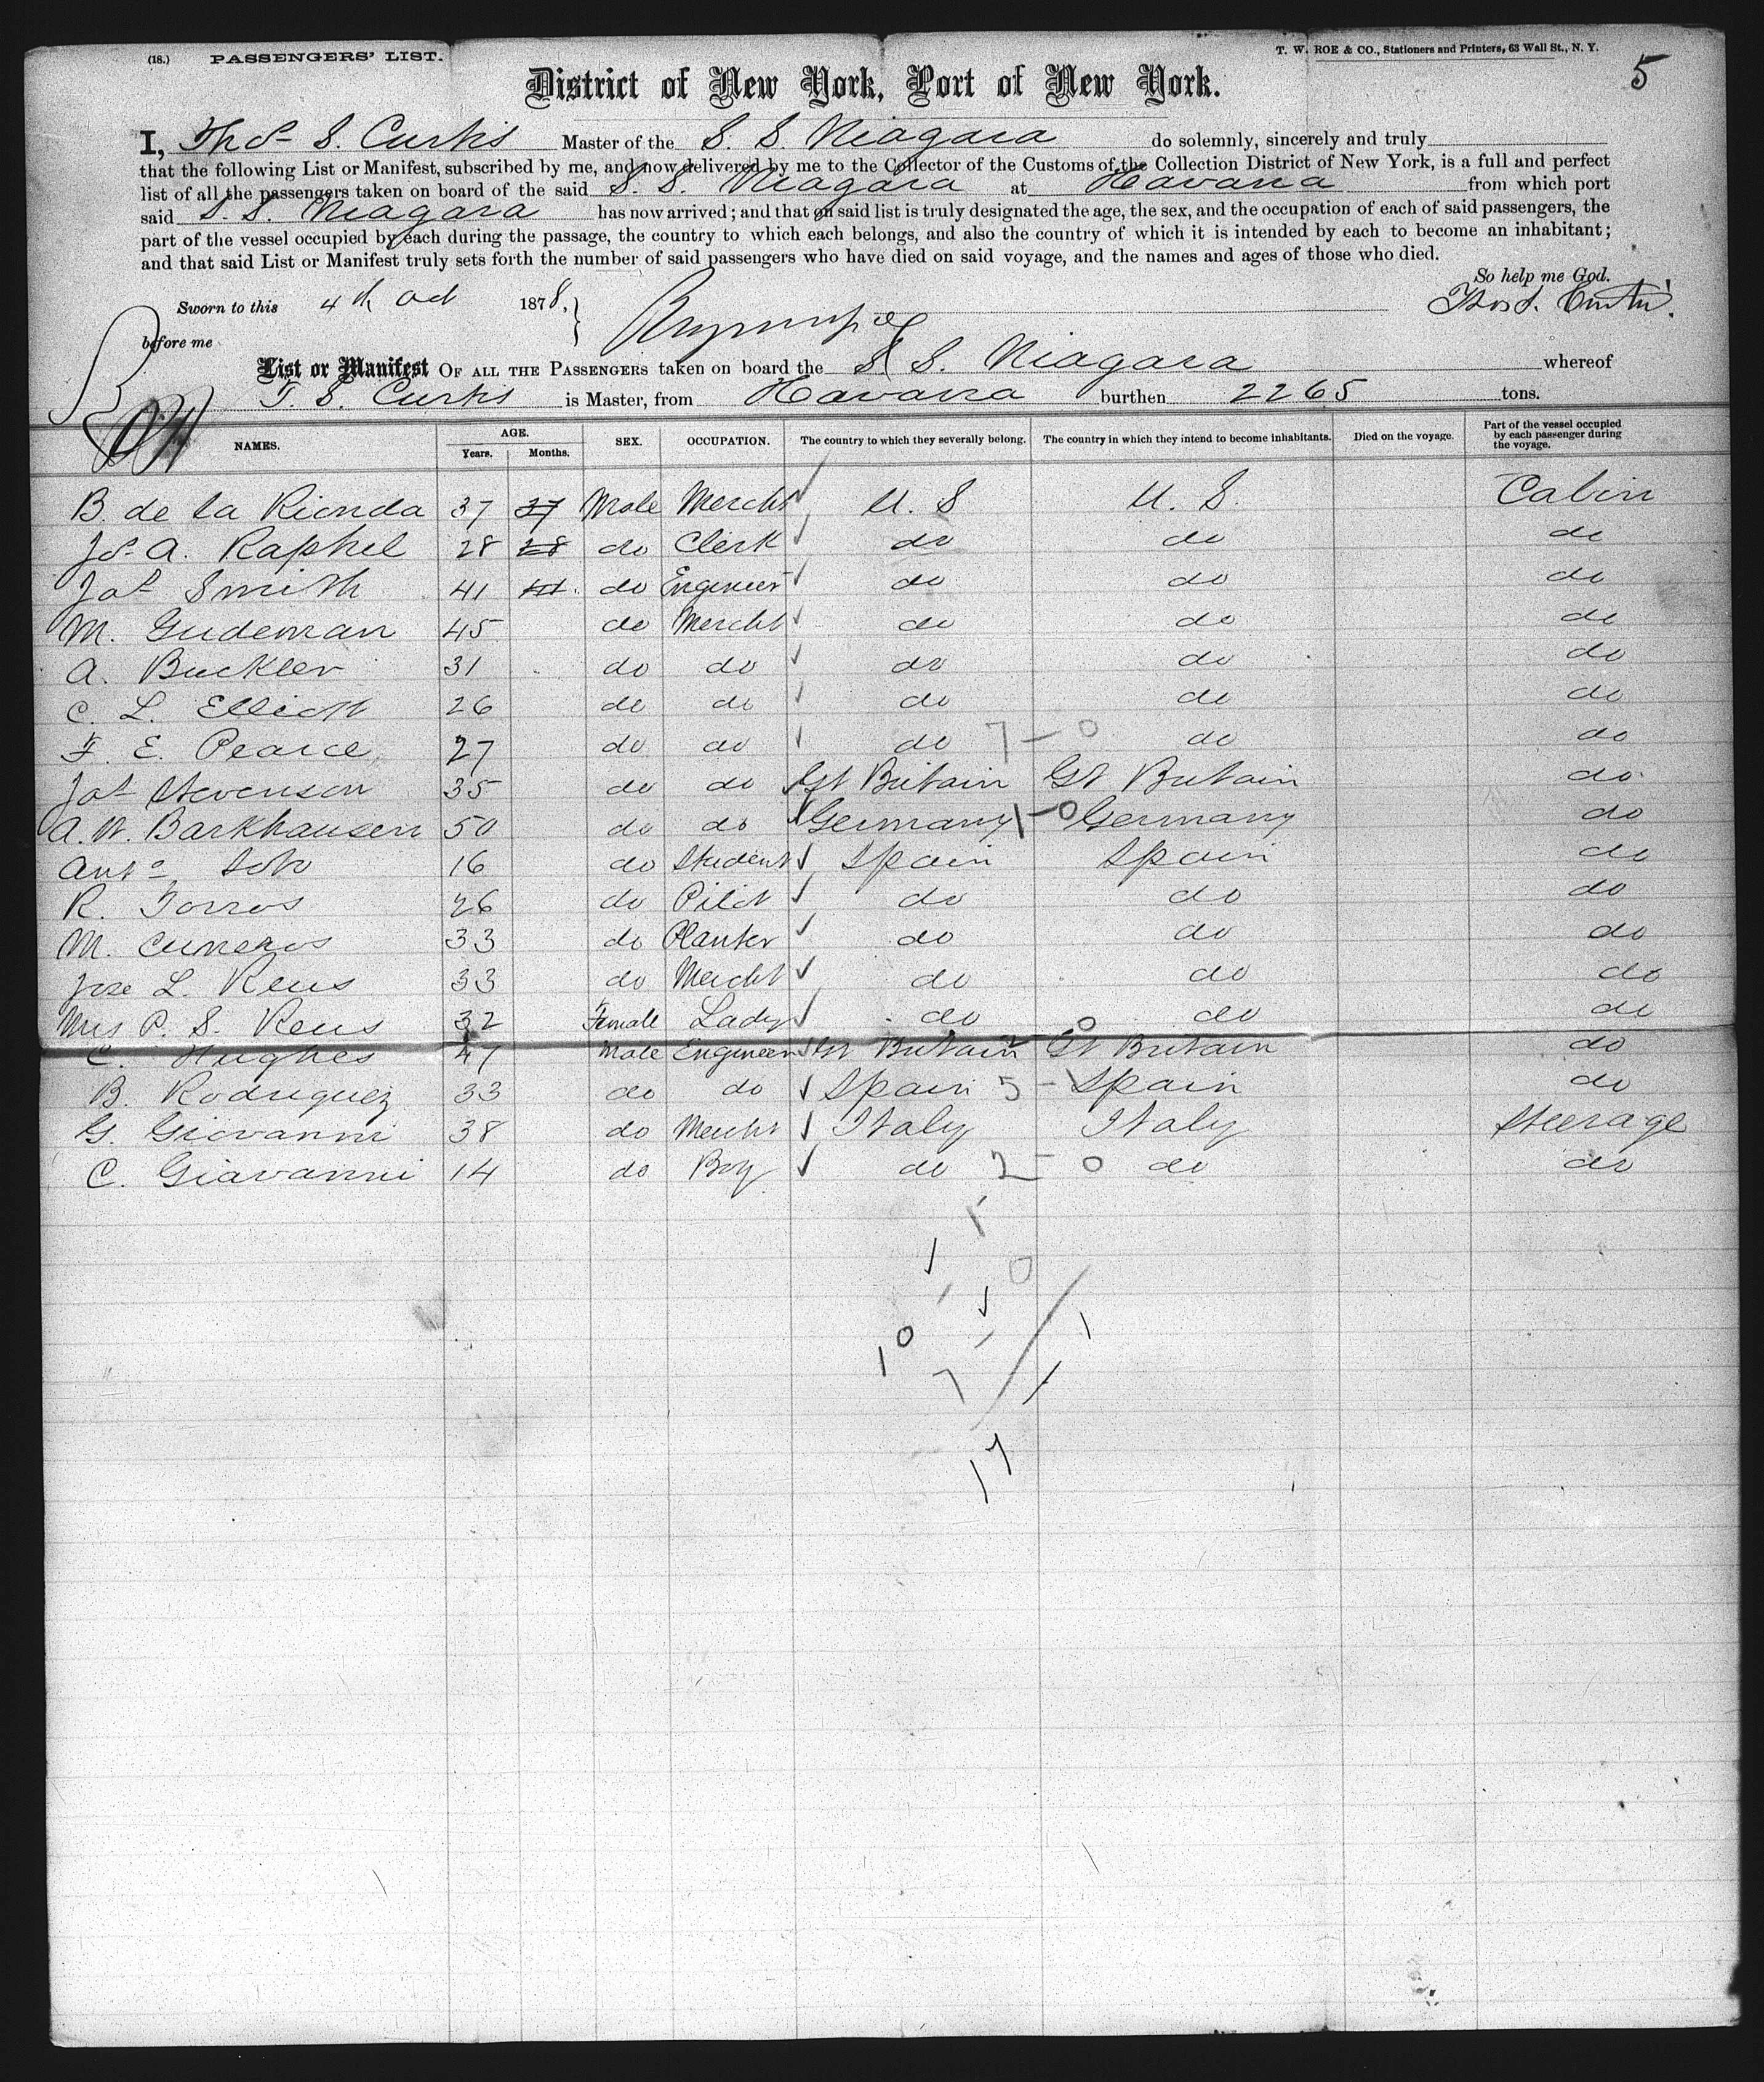 (18.) PASSENGERS' LIST. T. W. ROE & CO., Stationers and Printers, 63 Wall St., N. Y.
5
District of New York, Port of New York.
I, Thos S. Curtis Master of the S. S. Niagara do solemnly, sincerely and truly
that the following List or Manifest, subscribed by me, and now delivered by me to the Collector of the Customs of the Collection District of New York, is a full and perfect
list of all the passengers taken on board of the said S. S. Niagara at Havana from which port
said S. S. Niagara has now arrived; and that on said list is truly designated the age, the sex, and the occupation of each of said passengers, the
part of the vessel occupied by each during the passage, the country to which each belongs, and also the country of which it is intended by each to become an inhabitant;
and that said List or Manifest truly sets forth the number of said passengers who have died on said voyage, and the names and ages of those who died.
So help me God.
Sworn to this 4th Oct 1878, Thos S. Curtis
before me
List or Manifest OF ALL THE PASSENGERS taken on board the S. S. Niagara whereof
T. S. Curtis is Master, from Havana burthen 2265 tons.
NAMES. AGE. Years. Months. SEX. OCCUPATION. The country to which they severally belong. The country in which they intend to become inhabitants. Died on the voyage. Part of the vessel occupied by each passenger during the voyage.
B. de la Rionda 37 37 Male Mercht U. S U. S. Cabin
Js. A. Raphel 28 28 do Clerk do do do
Jas Smith 41 41 do Engineer do do do
M. Gudeman 45 do Mercht do do do
A. Buckler 31 do do do do do
C. L. Elliott 26 do do do do do
F. E. Pearce 27 do do do 7-0 do do
Jas Stevenson 35 do do Gt Britain Gt Britain do
A. W. Barkhausen 50 do do Germany 1-0 Germany do
Anto Soto 16 do Student Spain Spain do
R. Torros 26 do Pilot do do do
M. Cuneros 33 do Planter do do do
Jose L. Reus 33 do Mercht do do do
Mrs P. S. Reus 32 Female Lady do do do
C. Hughes 47 Male Engineer Gt Britain 2 0 Gt Britain do
B. Rodriguez 33 do do Spain 5-1 Spain do
G. Giovanni 38 do Mercht Italy Italy Steerage
C. Giavanni 14 do Boy do 2-0 do do
10
7
17